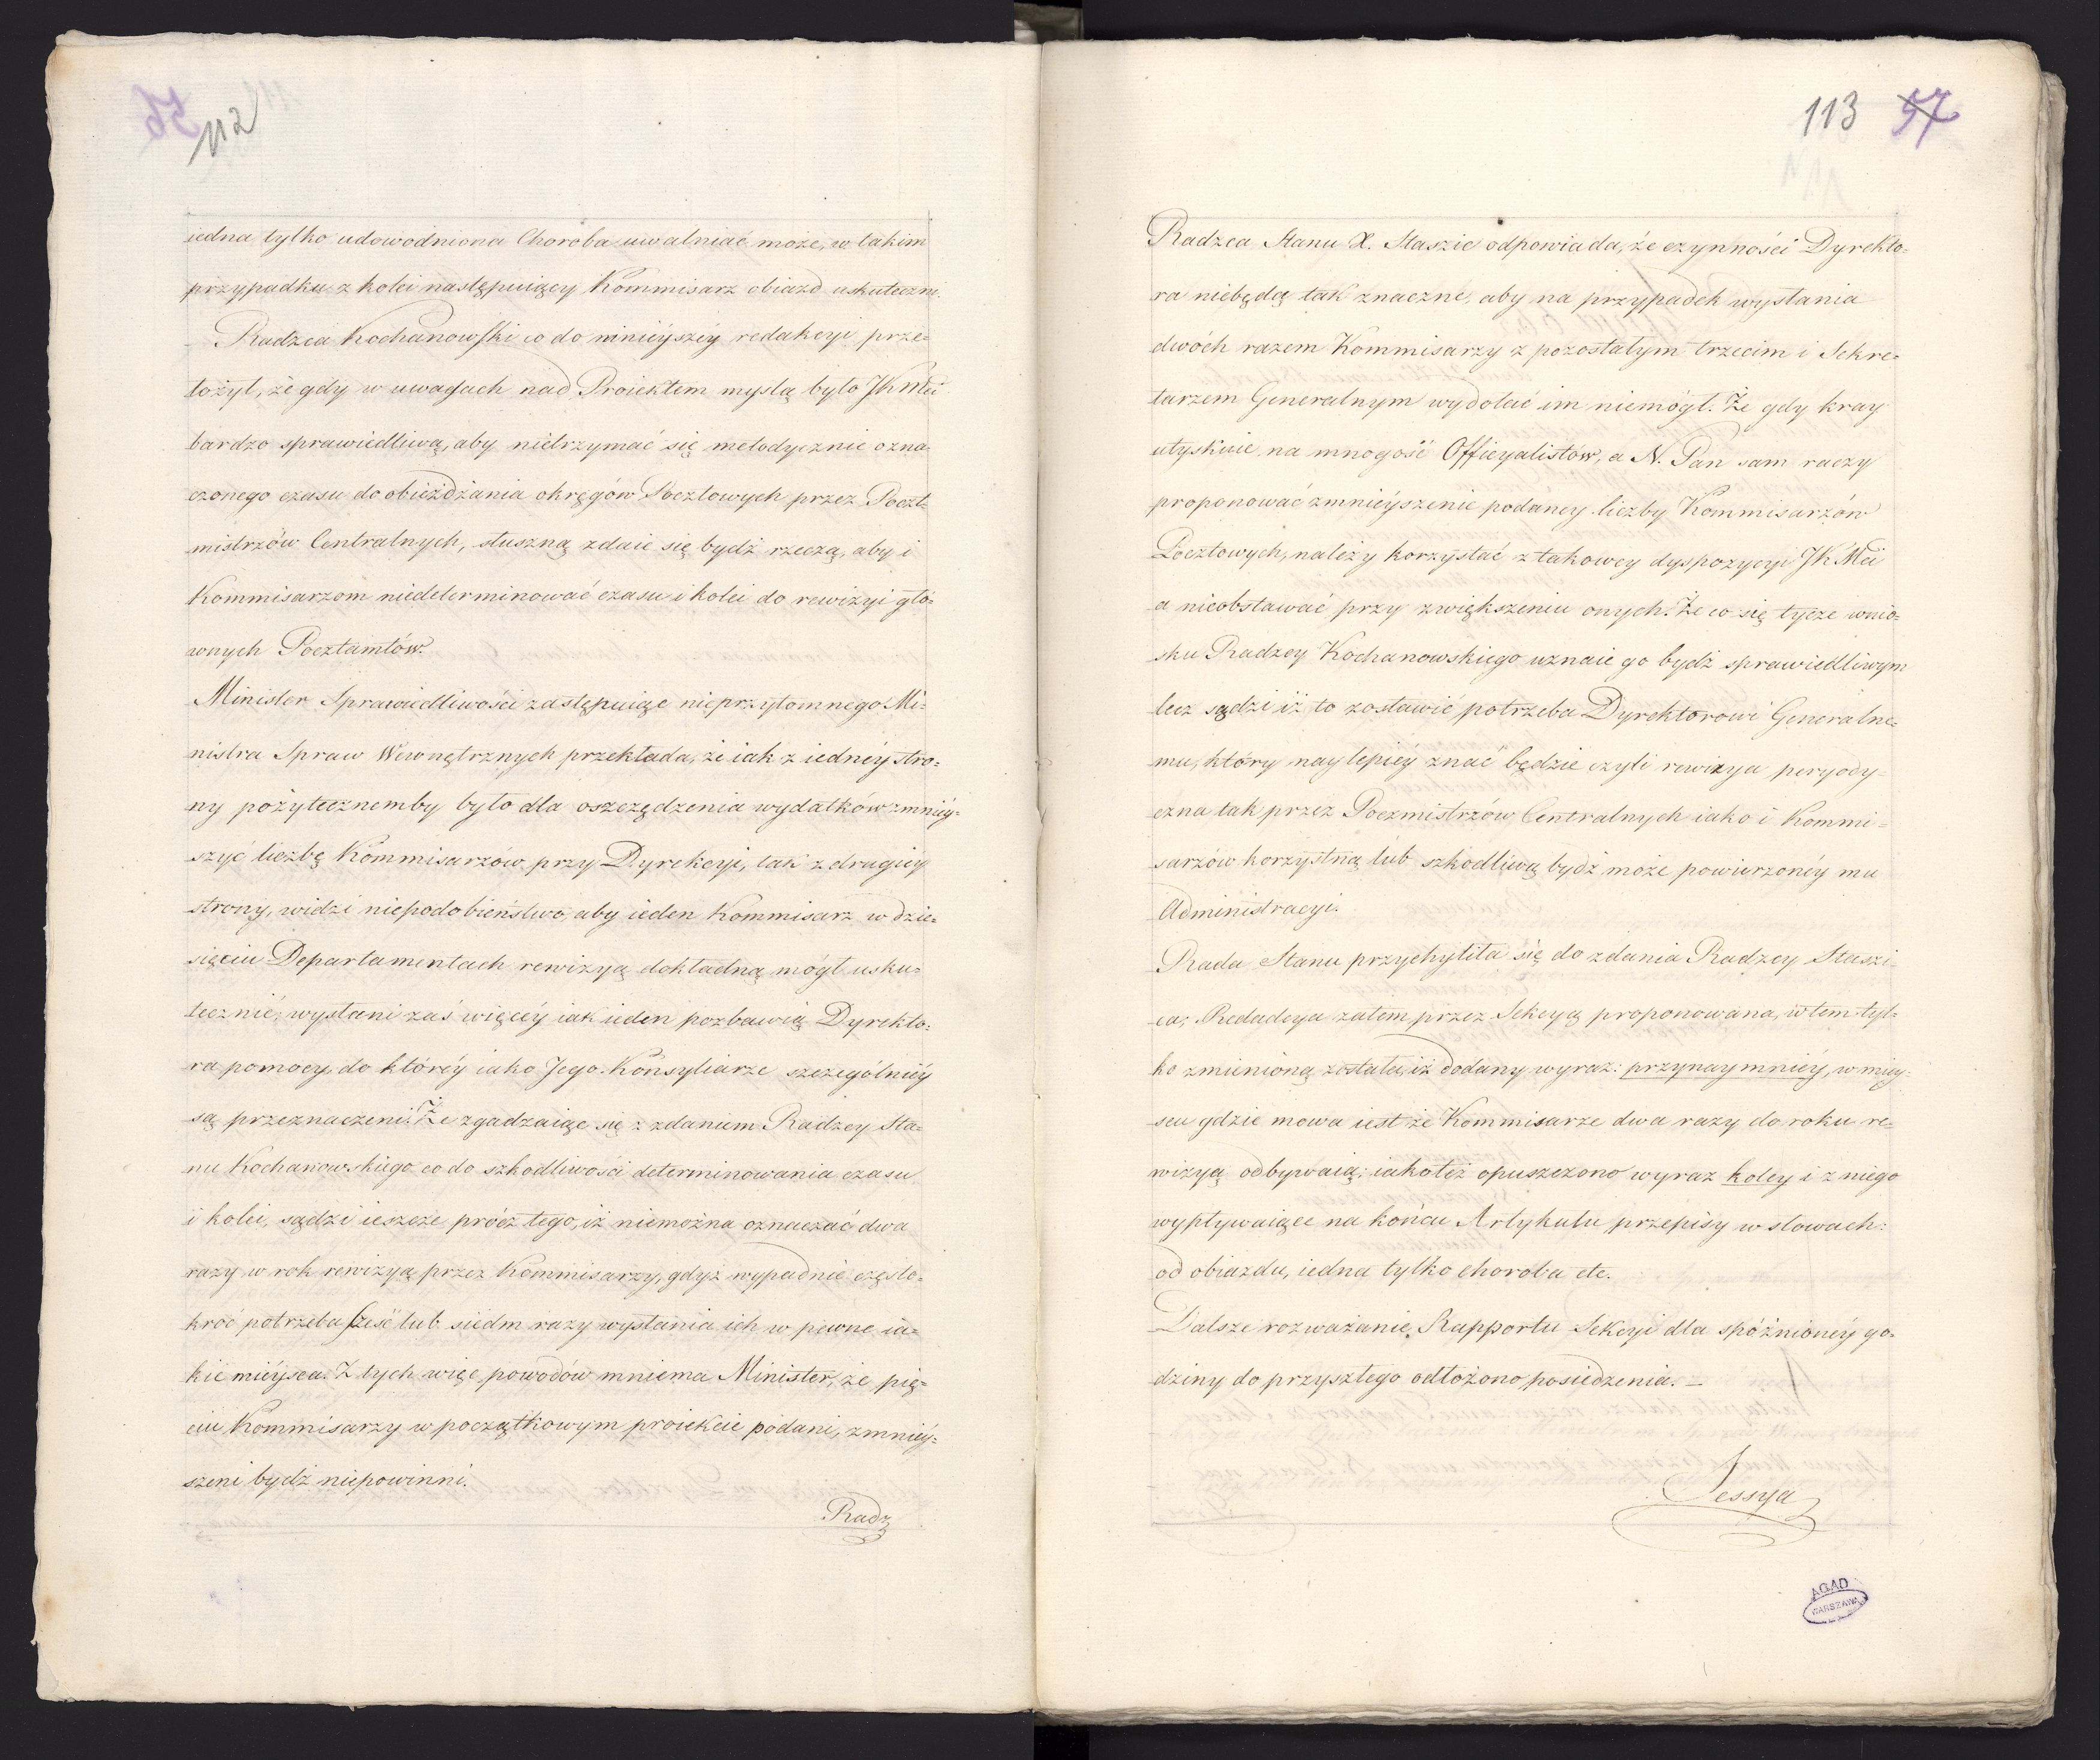 112
iedna tylko udowodniona Choroba uwalniać może, w takim
przypadku z kolei następuiący Kommisarz obiazd uskuteczni.
Radzca Kochanowski co do ninieyszéy redakcyi prze=
łożył, że gdy w uwagach nad Proiektem myslą było JKMci
bardzo sprawiedliwą, aby nietrzymać się metodycznie ozna=
czonego czasu do obieżdżania okręgów Pocztowych przez Poczt=
mistrzów Centralnych, słuszną zdaie się bydź rzeczą, aby i
Kommisarzom niedeterminować czasu i kolei do rewizyi głó=
wnych Pocztamtów.
Minister Sprawiedliwości zastępuiąc nieprzytomnego Mi=
nistra Spraw Wewnętrznych przekłada, że iak z iednéy stro=
ny pożytecznemby było dla oszczędzenia wydatków zmniéy=
szyć liczbę Kommisarzów przy Dyrekcyi, tak z drugiéy
strony, widzi niepodobieństwo, aby ieden Kommisarz w dzie=
sięciu Departamentach rewizyą dokładną mógł usku=
tecznić, wysłani zaś więcéy iak ieden pozbawią Dyrekto=
ra pomocy, do któréy iako Jego Konsyliarze szczególniéy
są przeznaczeni. Że zgadzaiąc się z zdaniem Radzcy Sta=
nu Kochanowskiego co do szkodliwości determinowania czasu
i kolei, sądzi ieszcze prócz tego, iż niemożna oznaczać dwa
razy w rok rewizyą przez Kommisarzy, gdyż wypadnie często=
kroć potrzeba sześć lub siedm razy wysłania ich w pewne ia=
kie mieysca. Z tych więc powodów mniema Minister, że pię=
ciu Kommisarzy w początkowym proiekcie podani, zmniéy=
szeni bydź niepowinni.
Radz
113 57
Radzca Stanu X. Staszic odpowiada, że czynności Dyrekto=
ra niebędą tak znaczne, aby na przypadek wysłania
dwóch razem Kommisarzy z pozostałym trzecim i Sekre=
tarzem Generalnym wydołać im niemógł. Że gdy kray
utyskuie na mnogość Officyalistów, a N. Pan sam raczy
proponować zmnieyszenie podaney liczby Kommisarzów
Pocztowych, należy korzystać z takowey dyspozycyi JKMci
a nieobstawać przy zwiększeniu onych. Że co się tycze wnio=
sku Radzcy Kochanowskiego uznaie go bydź sprawiedliwym
lecz sądzi iż to zostawić potrzeba Dyrektorowi Generalne=
mu, który naylepiéy znać będzie czyli rewizya peryody=
czna tak przez Poczmistrzów Centralnych iako i Kommi=
sarzów korzystną lub szkodliwą bydź może powierzonéy mu
Administracyi.
Rada Stanu przychyliła się do zdania Radzcy Staszi=
ca; Redadcya zatem przez Sekcyą proponowana, w tem tyl=
ko zmienioną została, iż dodany wyraz: przynaymniéy, w miey=
scu gdzie mowa iest że Kommisarze dwa razy do roku re=
wizyą odbywaią; iakoteż opuszczono wyraz koley i z niego
wypływaiące na końcu Artykułu przepisy w słowach:
od obiazdu, iedna tylko choroba etc.
Dalsze rozważanie Rapportu Sekcyi dla spóźnionéy go=
dziny do przyszłego odłożono posiedzenia. —
Sessya
AGAD
WARSZAWA